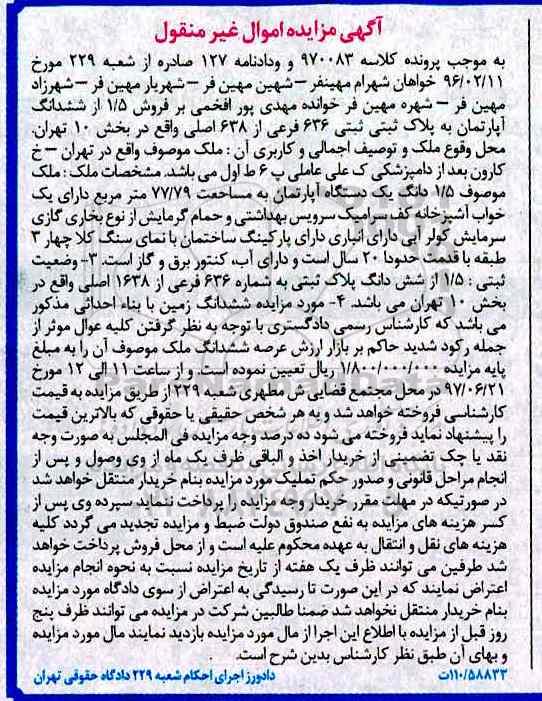 آگهی مزایده اموال غیر منقول
به موجب پرونده کلاسه ۹۷۰۰۸۳ و ودادنامه ۱۲۷ صادره از شعبه ۲۲۹ مورخ
۹۶/۰۲/۱۱ خواهان شهرام مهینفر –شهین مهین فر –شهریار مهین فر –شهرزاد
مهین فر – شهره مهین فر خوانده مهدی پور افخمی بر فروش ۱/۵ از ششدانگ
آپارتمان به پلاک ثبتی ثبتی ۶۳۶ فرعی از ۶۳۸ اصلی واقع در بخش ۱۰ تهران.
محل وقوع ملک و توصیف اجمالی و کاربری آن : ملک موصوف واقع در تهران –خ
کارون بعد از دامپزشکی ک علی عاملی پ ۶ ط اول می باشد. مشخصات ملک : ملک
موصوف ۱/۵ دانگ یک دستگاه آپارتمان به مساحعت ۷۷/۷۹ متر مربع دارای یک
خواب آشپزخانه کف سرامیک سرویس بهداشتی و حمام گرمایش از نوع بخاری گازی
سرمایش کولر آبی دارای انباری دارای پارکینگ ساختمان با نمای سنگ کلا چهار ۳
طبقه با قدمت حدودا ۲۰ سال است و دارای آب، کنتور برق و گاز است. ۳- وضعیت
ثبتی : ۱/۵ از شش دانگ پلاک ثبتی به شماره ۶۳۶ فرعی از ۱۶۳۸ اصلی واقع در
بخش ۱۰ تهران می باشد. ۴- مورد مزایده ششدانگ زمین با بناء احداثی مذکور
می باشد که کارشناس رسمی دادگستری با توجه به نظر گرفتن کلیه عوال موثر از
جمله رکود شدید حاکم بر بازار ارزش عرصه ششدانگ ملک موصوف آن را به مبلغ
پایه مزایده ۱/۸۰۰/۰۰۰/۰۰۰ ریال تعیین نموده است. و از ساعت ۱۱ الی ۱۲ مورخ
۹۷/۰۶/۲۱ در محل مجتمع قضایی ش مطهری شعبه ۲۲۹ از طریق مزایده به قیمت
کارشناسی فروخته خواهد شد و به هر شخص حقیقی یا حقوقی که بالاترین قیمت
را پیشنهاد نماید فروخته می شود ده درصد وجه مزایده فی المجلس به صورت وجه
نقد یا چک تضمینی از خریدار اخذ و الباقی ظرف یک ماه از وی وصول و پس از
انجام مراحل قانونی و صدور حکم تملیک مورد مزایده بنام خریدار منتقل خواهد شد
در صورتیکه در مهلت مقرر خریدار وجه مزایده را پرداخت ننماید سپرده وی پس از
کسر هزینه های مزایده به نفع صندوق دولت ضبط و مزایده تجدید می گردد کلیه
هزینه های نقل و انتقال به عهده محکوم علیه است و از محل فروش پرداخت خواهد
شد طرفین می توانند ظرف یک هفته از تاریخ مزایده نسبت به نحوه انجام مزایده
اعتراض نمایند که در این صورت تا رسیدگی به اعتراض از سوی دادگاه مورد مزایده
بنام خریدار منتقل نخواهد شد ضمنا طالبین شرکت در مزایده می توانند ظرف پنج
روز قبل از مزایده با اطلاع این اجرا از مال مورد مزایده بازدید نمایند مال مورد مزایده
و بهای آن طبق نظر کارشناس بدین شرح است.
۱۱۰/۵۸۸۳۳ت دادورز اجرای احکام شعبه ۲۲۹ دادگاه حقوقی تهران